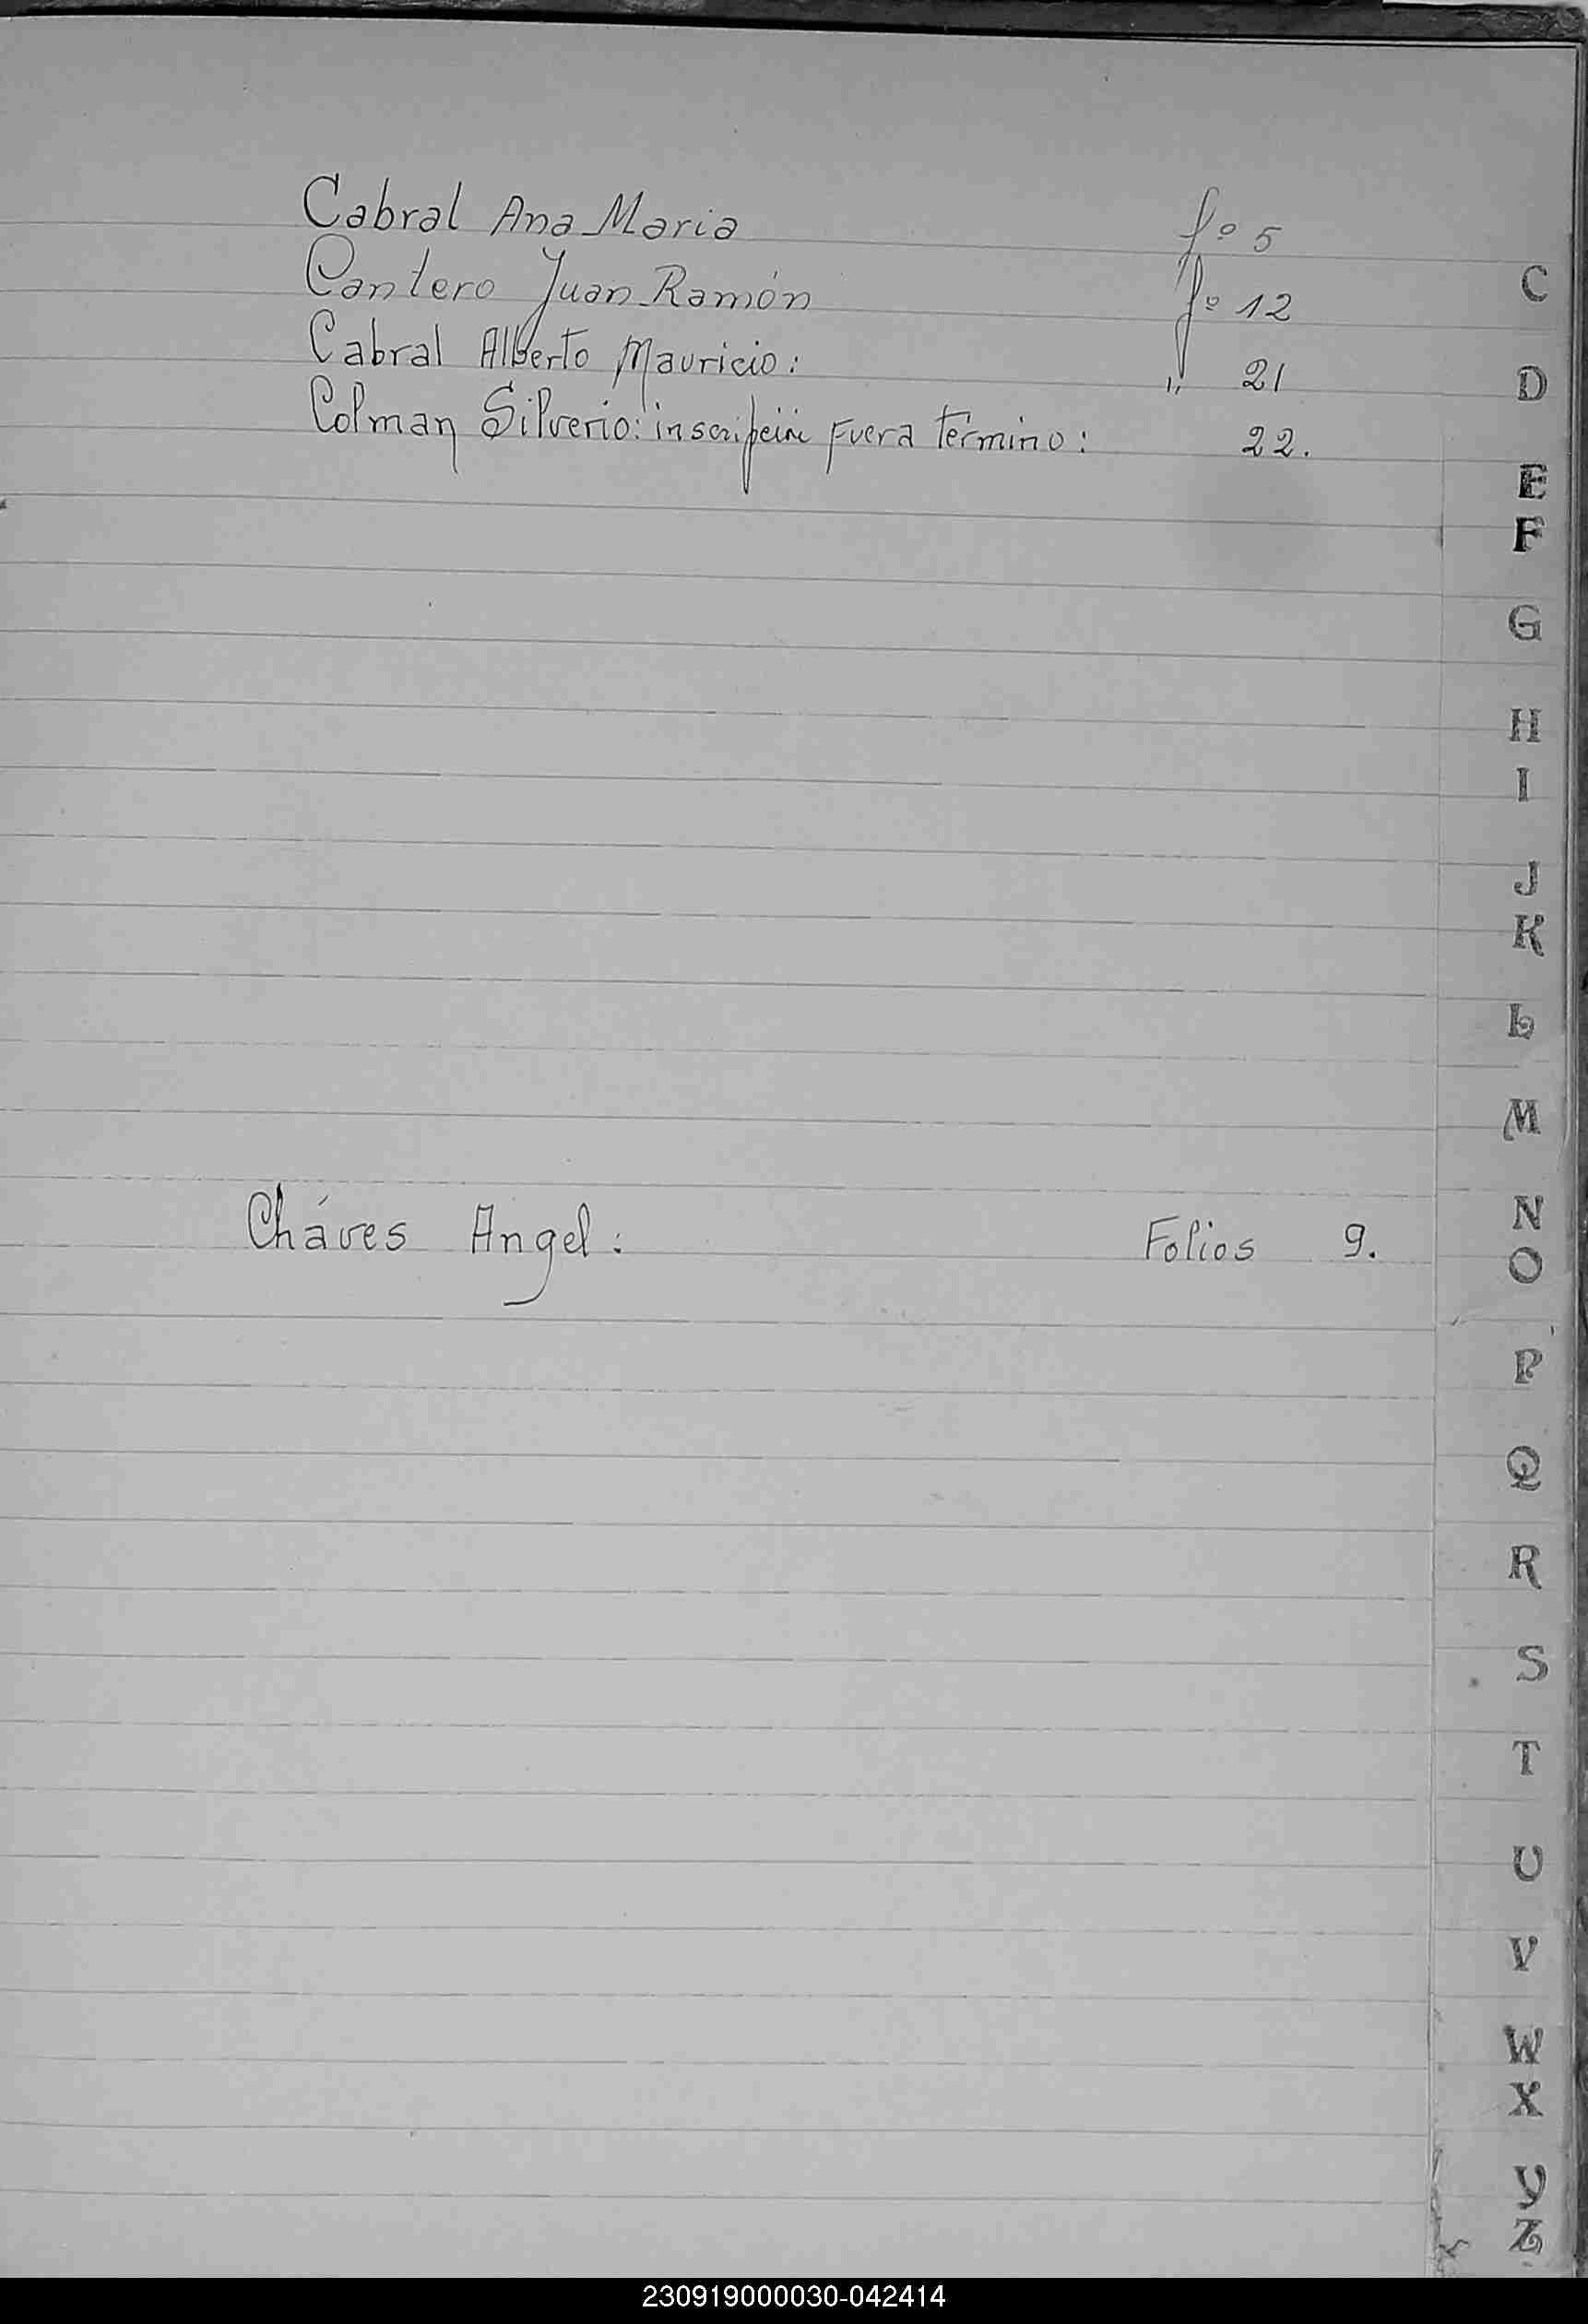 Cabral Ana Maria fº 5
Cantero Juan Ramón fº 12
Cabral Alberto Mauricio: " 21
Colman Silverio: inscripción Fuera término: 22.
Cháves Angel: Folios 9.
C
D
E
F
G
H
I
J
K
L
M
N
O
P
Q
R
S
T
U
V
W
X
Y
Z
230919000030-042414